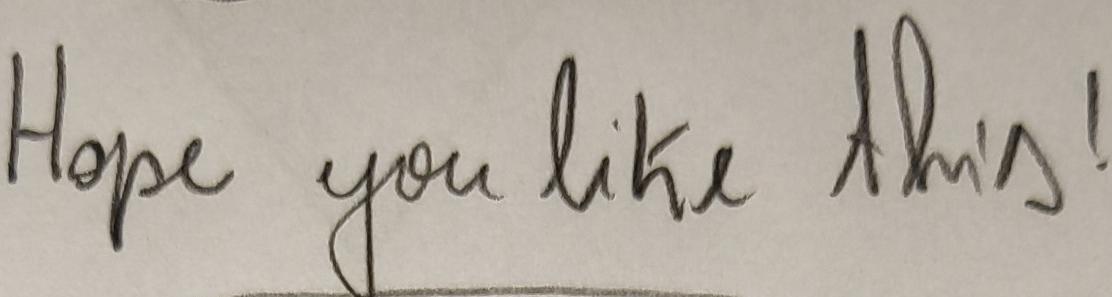 Hope you like this!